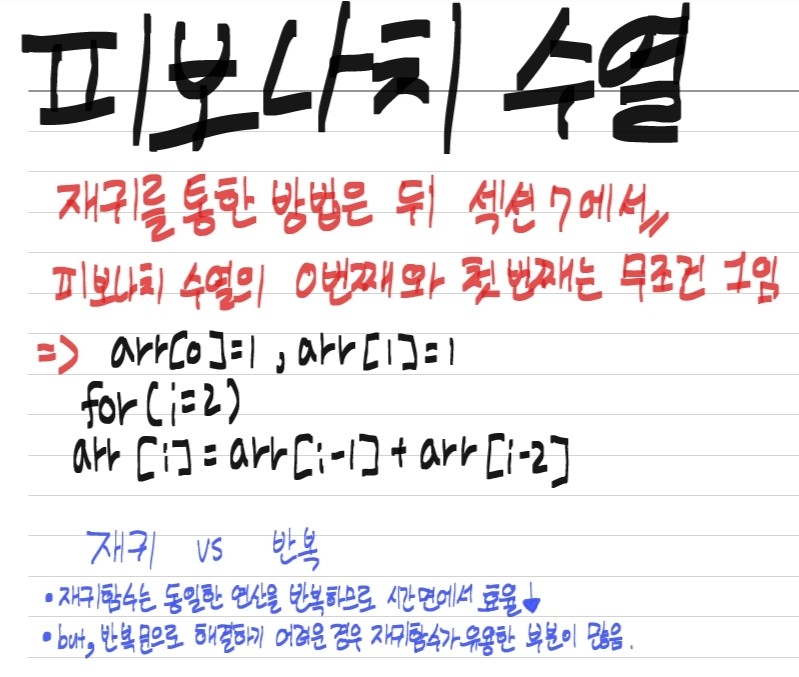 피보나치 수열
재귀를 통한 방법은 뒤 섹션 7에서〃
피보나치 수열의 0번째와 첫번째는 무조건 1임
=> arr[0]=1 , arr[1]=1
for(i=2)
arr [i] = arr[i-1] + arr [i-2]
재귀 vs 반복
• 재귀함수는 동일한 연산을 반복하므로 시간면에서 효율↓
• but, 반복문으로 해결하기 어려운 경우 재귀함수가 유용한 부분이 많음.